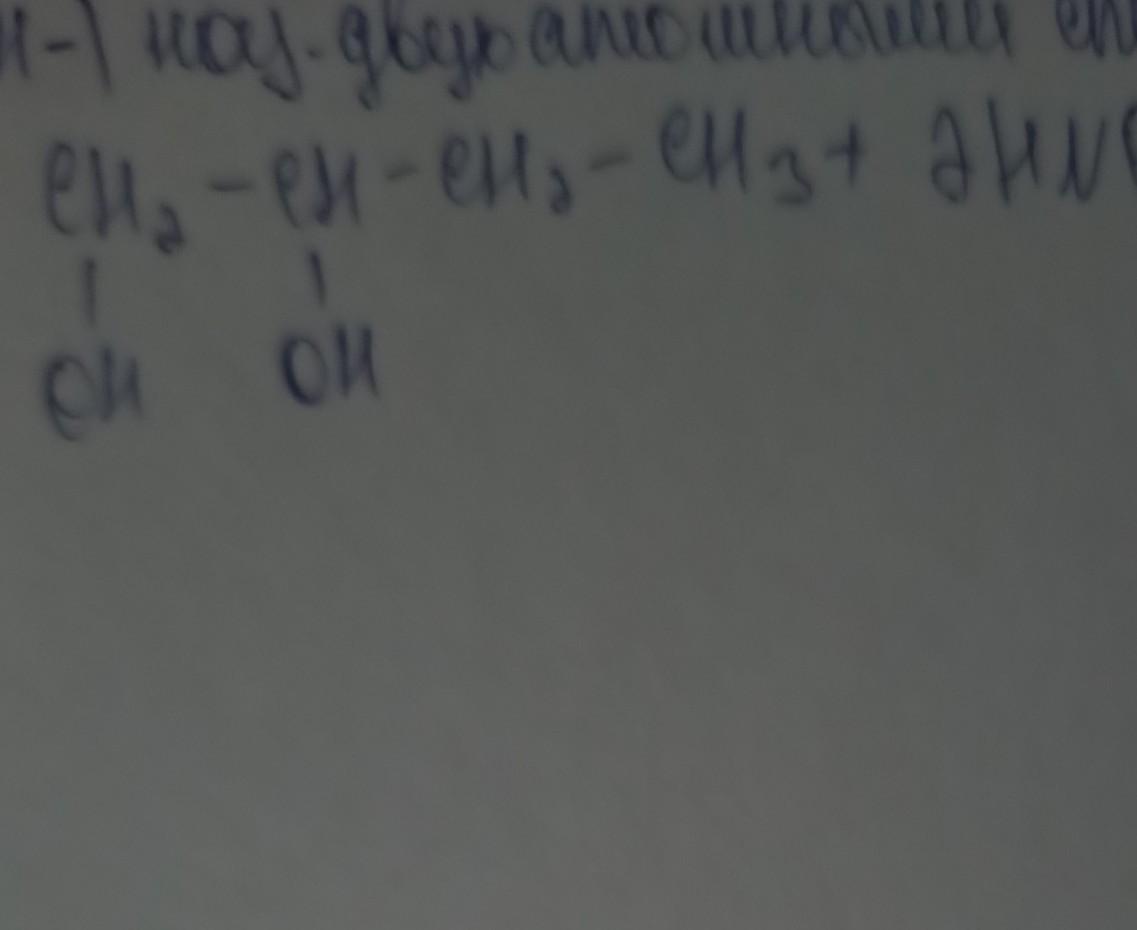 н-) наз. двухатомными сп
CH₂ - CH - CH₂ - CH₃ + 2HN
OH OH